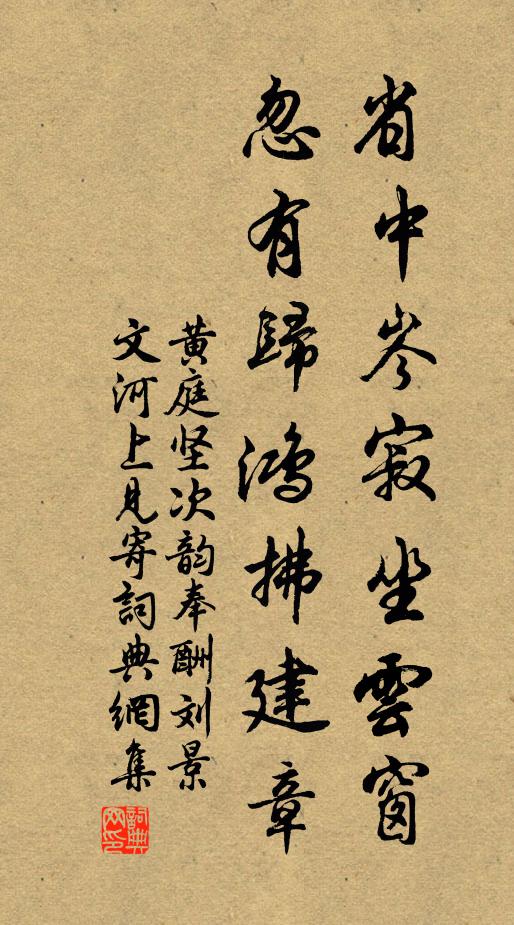 省中岑寂坐雲窗
忽有歸鴻拂建章
黃庭坚次韵奉酬刘景
文河上見寄詞典網集
詞典网印